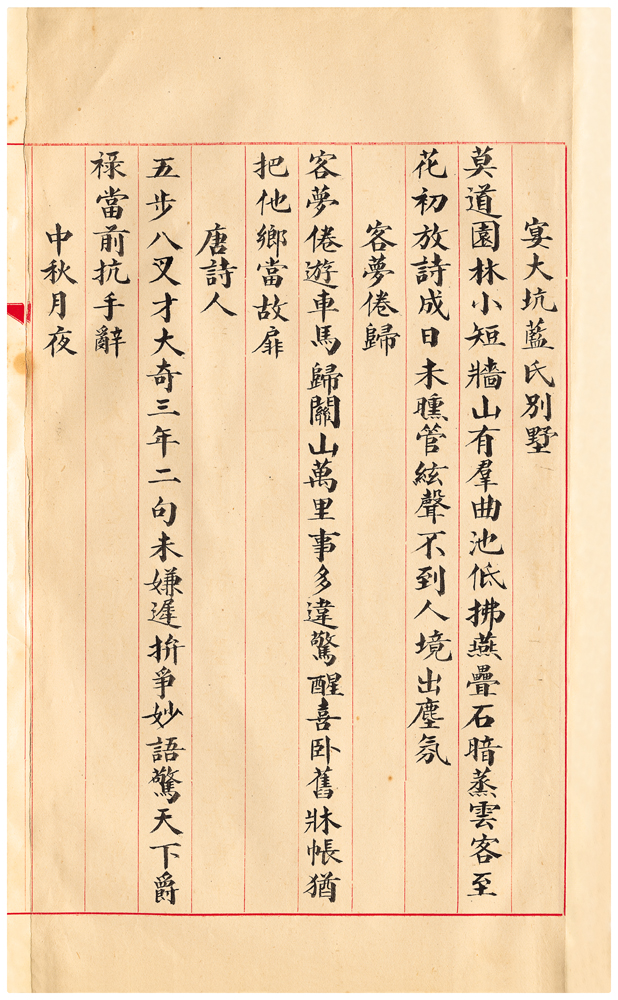 宴大坑藍氏別墅
莫道園林小短牆山有羣曲池低拂燕疊石暗蒸雲客至
花初放詩成日未曛管絃聲不到人境出塵氛
客夢倦歸
客夢倦遊車馬歸關山萬里事多違驚醒喜卧舊牀帳猶
把他鄉當故扉
唐詩人
五步八叉才大奇三年二句未嫌遲拚爭妙語驚天下爵
祿當前抗手辭
中秋月夜